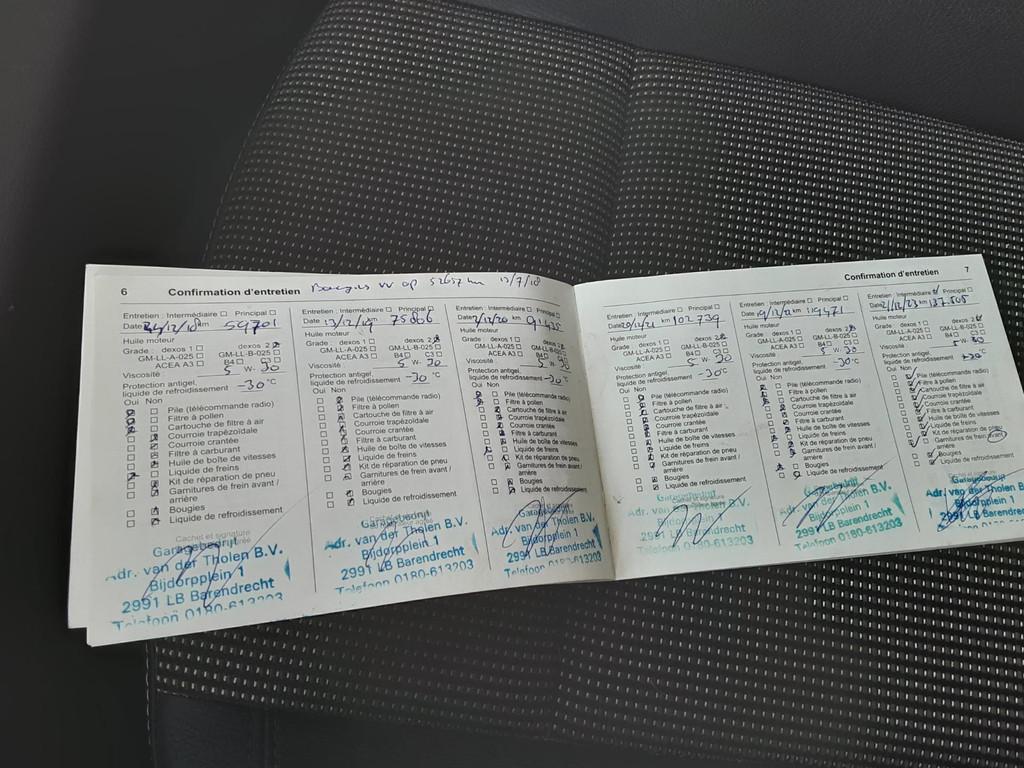 6 Confirmation d'entretien
Entretien : Intermédiaire Principal
Date 24/12/18 km 59701
Huile moteur
Grade : dexos 1 dexos 2
GM-LL-A-025 GM-LL-B-025
ACEA A3 B4 C3
Viscosité 5 W- 30
Protection antigel,
liquide de refroidissement -30 °C
Oui Non
Pile (télécommande radio)
Filtre à pollen
Cartouche de filtre à air
Courroie trapézoïdale
Courroie crantée
Filtre à carburant
Huile de boîte de vitesses
Liquide de freins
Kit de réparation de pneu
Garnitures de frein avant /
arrière
Bougies
Liquide de refroidissement
Cachet et signature
Garagebedrijf
Adr. van der Tholen B.V.
Bijdorpplein 1
2991 LB Barendrecht
Telefoon 0180-613203
Entretien : Intermédiaire Principal
Date 13/12/19 km 75806
Huile moteur
Grade : dexos 1 dexos 2
GM-LL-A-025 GM-LL-B-025
ACEA A3 B4 C3
Viscosité 5 W- 30
Protection antigel,
liquide de refroidissement -30 °C
Oui Non
Pile (télécommande radio)
Filtre à pollen
Cartouche de filtre à air
Courroie trapézoïdale
Courroie crantée
Filtre à carburant
Huile de boîte de vitesses
Liquide de freins
Kit de réparation de pneu
Garnitures de frein avant /
arrière
Bougies
Liquide de refroidissement
Garagebedrijf
Adr. van der Tholen B.V.
Bijdorpplein 1
2991 LB Barendrecht
Telefoon 0180-613203
Entretien : Intermédiaire Principal
Date /12/20 km 91435
Huile moteur
Grade : dexos 1 dexos 2
GM-LL-A-025 GM-LL-B-025
ACEA A3 B4 C3
Viscosité 5 W- 30
Protection antigel,
liquide de refroidissement -30 °C
Oui Non
Pile (télécommande radio)
Filtre à pollen
Cartouche de filtre à air
Courroie trapézoïdale
Courroie crantée
Filtre à carburant
Huile de boîte de vitesses
Liquide de freins
Kit de réparation de pneu
Garnitures de frein avant /
arrière
Bougies
Liquide de refroidissement
Garagebedrijf
Adr. van der Tholen B.V.
Bijdorpplein 1
2991 LB Barendrecht
Telefoon 0180-613203
Confirmation d'entretien 7
Entretien : Intermédiaire Principal
Date 20/12/21 km 102739
Huile moteur
Grade : dexos 1 dexos 2
GM-LL-A-025 GM-LL-B-025
ACEA A3 B4 C3
Viscosité 5 W- 30
Protection antigel,
liquide de refroidissement -30 °C
Oui Non
Pile (télécommande radio)
Filtre à pollen
Cartouche de filtre à air
Courroie trapézoïdale
Courroie crantée
Filtre à carburant
Huile de boîte de vitesses
Liquide de freins
Kit de réparation de pneu
Garnitures de frein avant /
arrière
Bougies
Liquide de refroidissement
Garagebedrijf
Adr. van der Tholen B.V.
Bijdorpplein 1
2991 LB Barendrecht
Telefoon 0180-613203
Entretien : Intermédiaire Principal
Date 19/12/22 km 119471
Huile moteur
Grade : dexos 1 dexos 2
GM-LL-A-025 GM-LL-B-025
ACEA A3 B4 C3
Viscosité 5 W- 30
Protection antigel,
liquide de refroidissement -30 °C
Oui Non
Pile (télécommande radio)
Filtre à pollen
Cartouche de filtre à air
Courroie trapézoïdale
Courroie crantée
Filtre à carburant
Huile de boîte de vitesses
Liquide de freins
Kit de réparation de pneu
Garnitures de frein avant /
arrière
Bougies
Liquide de refroidissement
Garagebedrijf
Adr. van der Tholen B.V.
Bijdorpplein 1
2991 LB Barendrecht
Telefoon 0180-613203
Entretien : Intermédiaire Principal
Date 21/12/23 km 137.505
Huile moteur
Grade : dexos 1 dexos 2
GM-LL-A-025 GM-LL-B-025
ACEA A3 B4 C3
Viscosité 5 W- 30
Protection antigel,
liquide de refroidissement
Oui Non
Pile (télécommande radio)
Filtre à pollen
Cartouche de filtre à air
Courroie trapézoïdale
Courroie crantée
Filtre à carburant
Huile de boîte de vitesses
Liquide de freins
Kit de réparation de pneu
Garnitures de frein avant /
arrière
Bougies
Liquide de refroidissement
Garagebedrijf
Adr. van der Tholen B.V.
Bijdorpplein 1
2991 LB Barendrecht